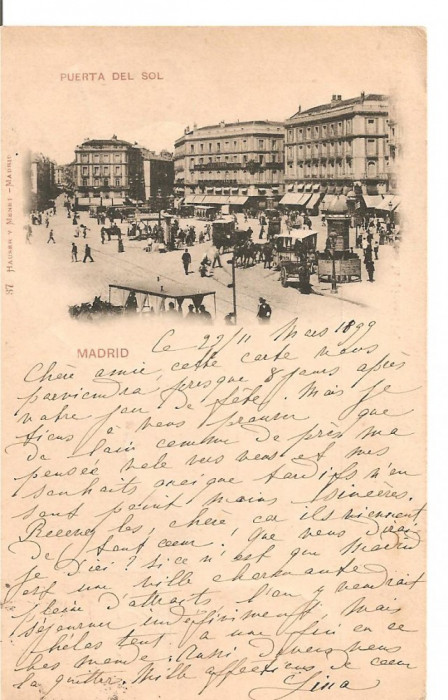 PUERTA DEL SOL
187 HAUSER Y MENET.-MADRID
MADRID
Le 22/11 Mars 1899
Chère amie, cette carte vous
parviendra presque 8 jours après
votre jour de fête. Mais je
tiens à vous prouver que
de loin comme de près ma
pensée vole vers vous et mes
souhaits quoique tardifs n'en
sont point moins sincères.
Recevez les, chère car ils viennent
de tout coeur! Que vous dirai
je d'ici? si ce n'est que Madrid
est une ville charmante
pleine d'attraits. L'on y voudrait
séjourner indéfiniment mais
hélas tout a une fin en ce
bas monde aussi devons nous
la quitter. Mille affections de coeur
Lina